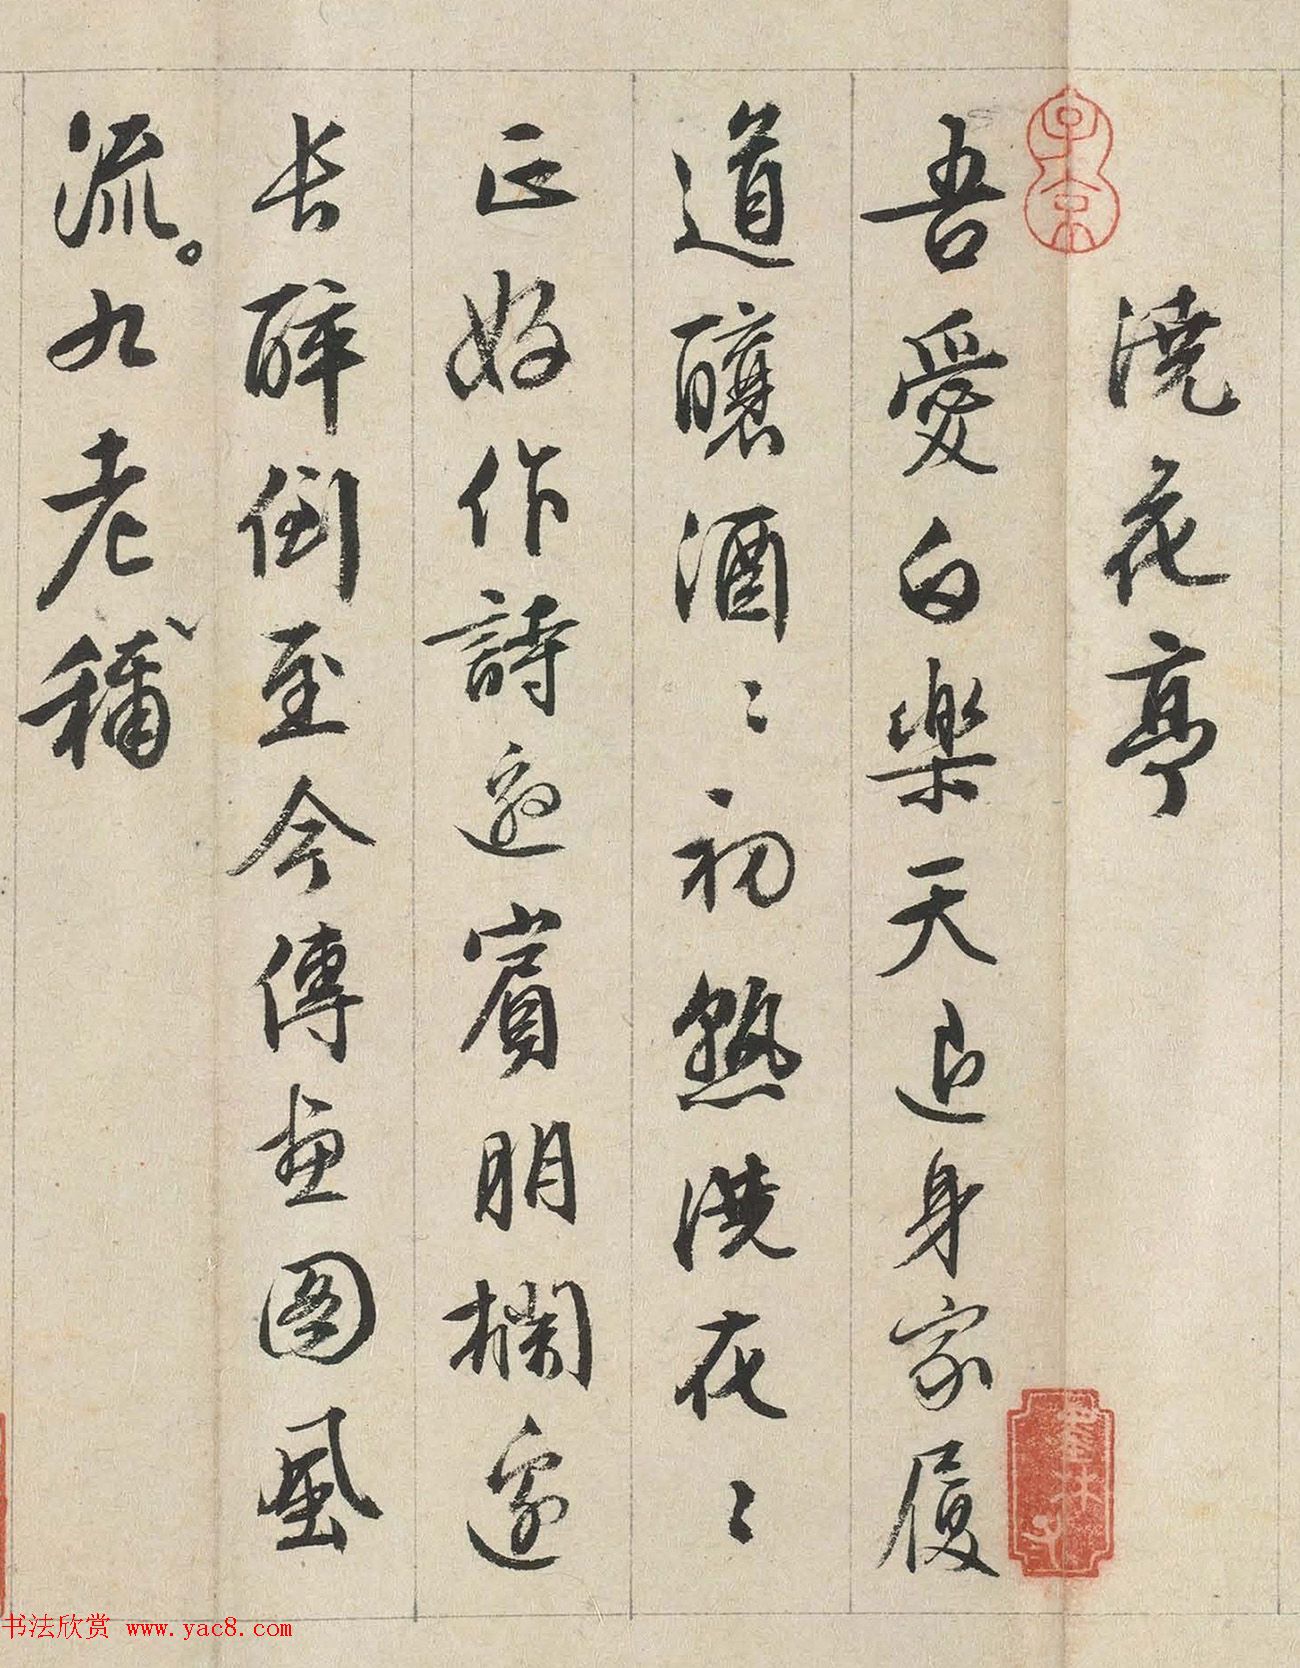 澆花亭
吾愛白樂天退身家履
道釀酒〻初熟澆花〻
正好作詩邀賓朋欄邊
長醉倒至今傳畫圖風
流。九老稱
书法欣赏 www.yac8.com